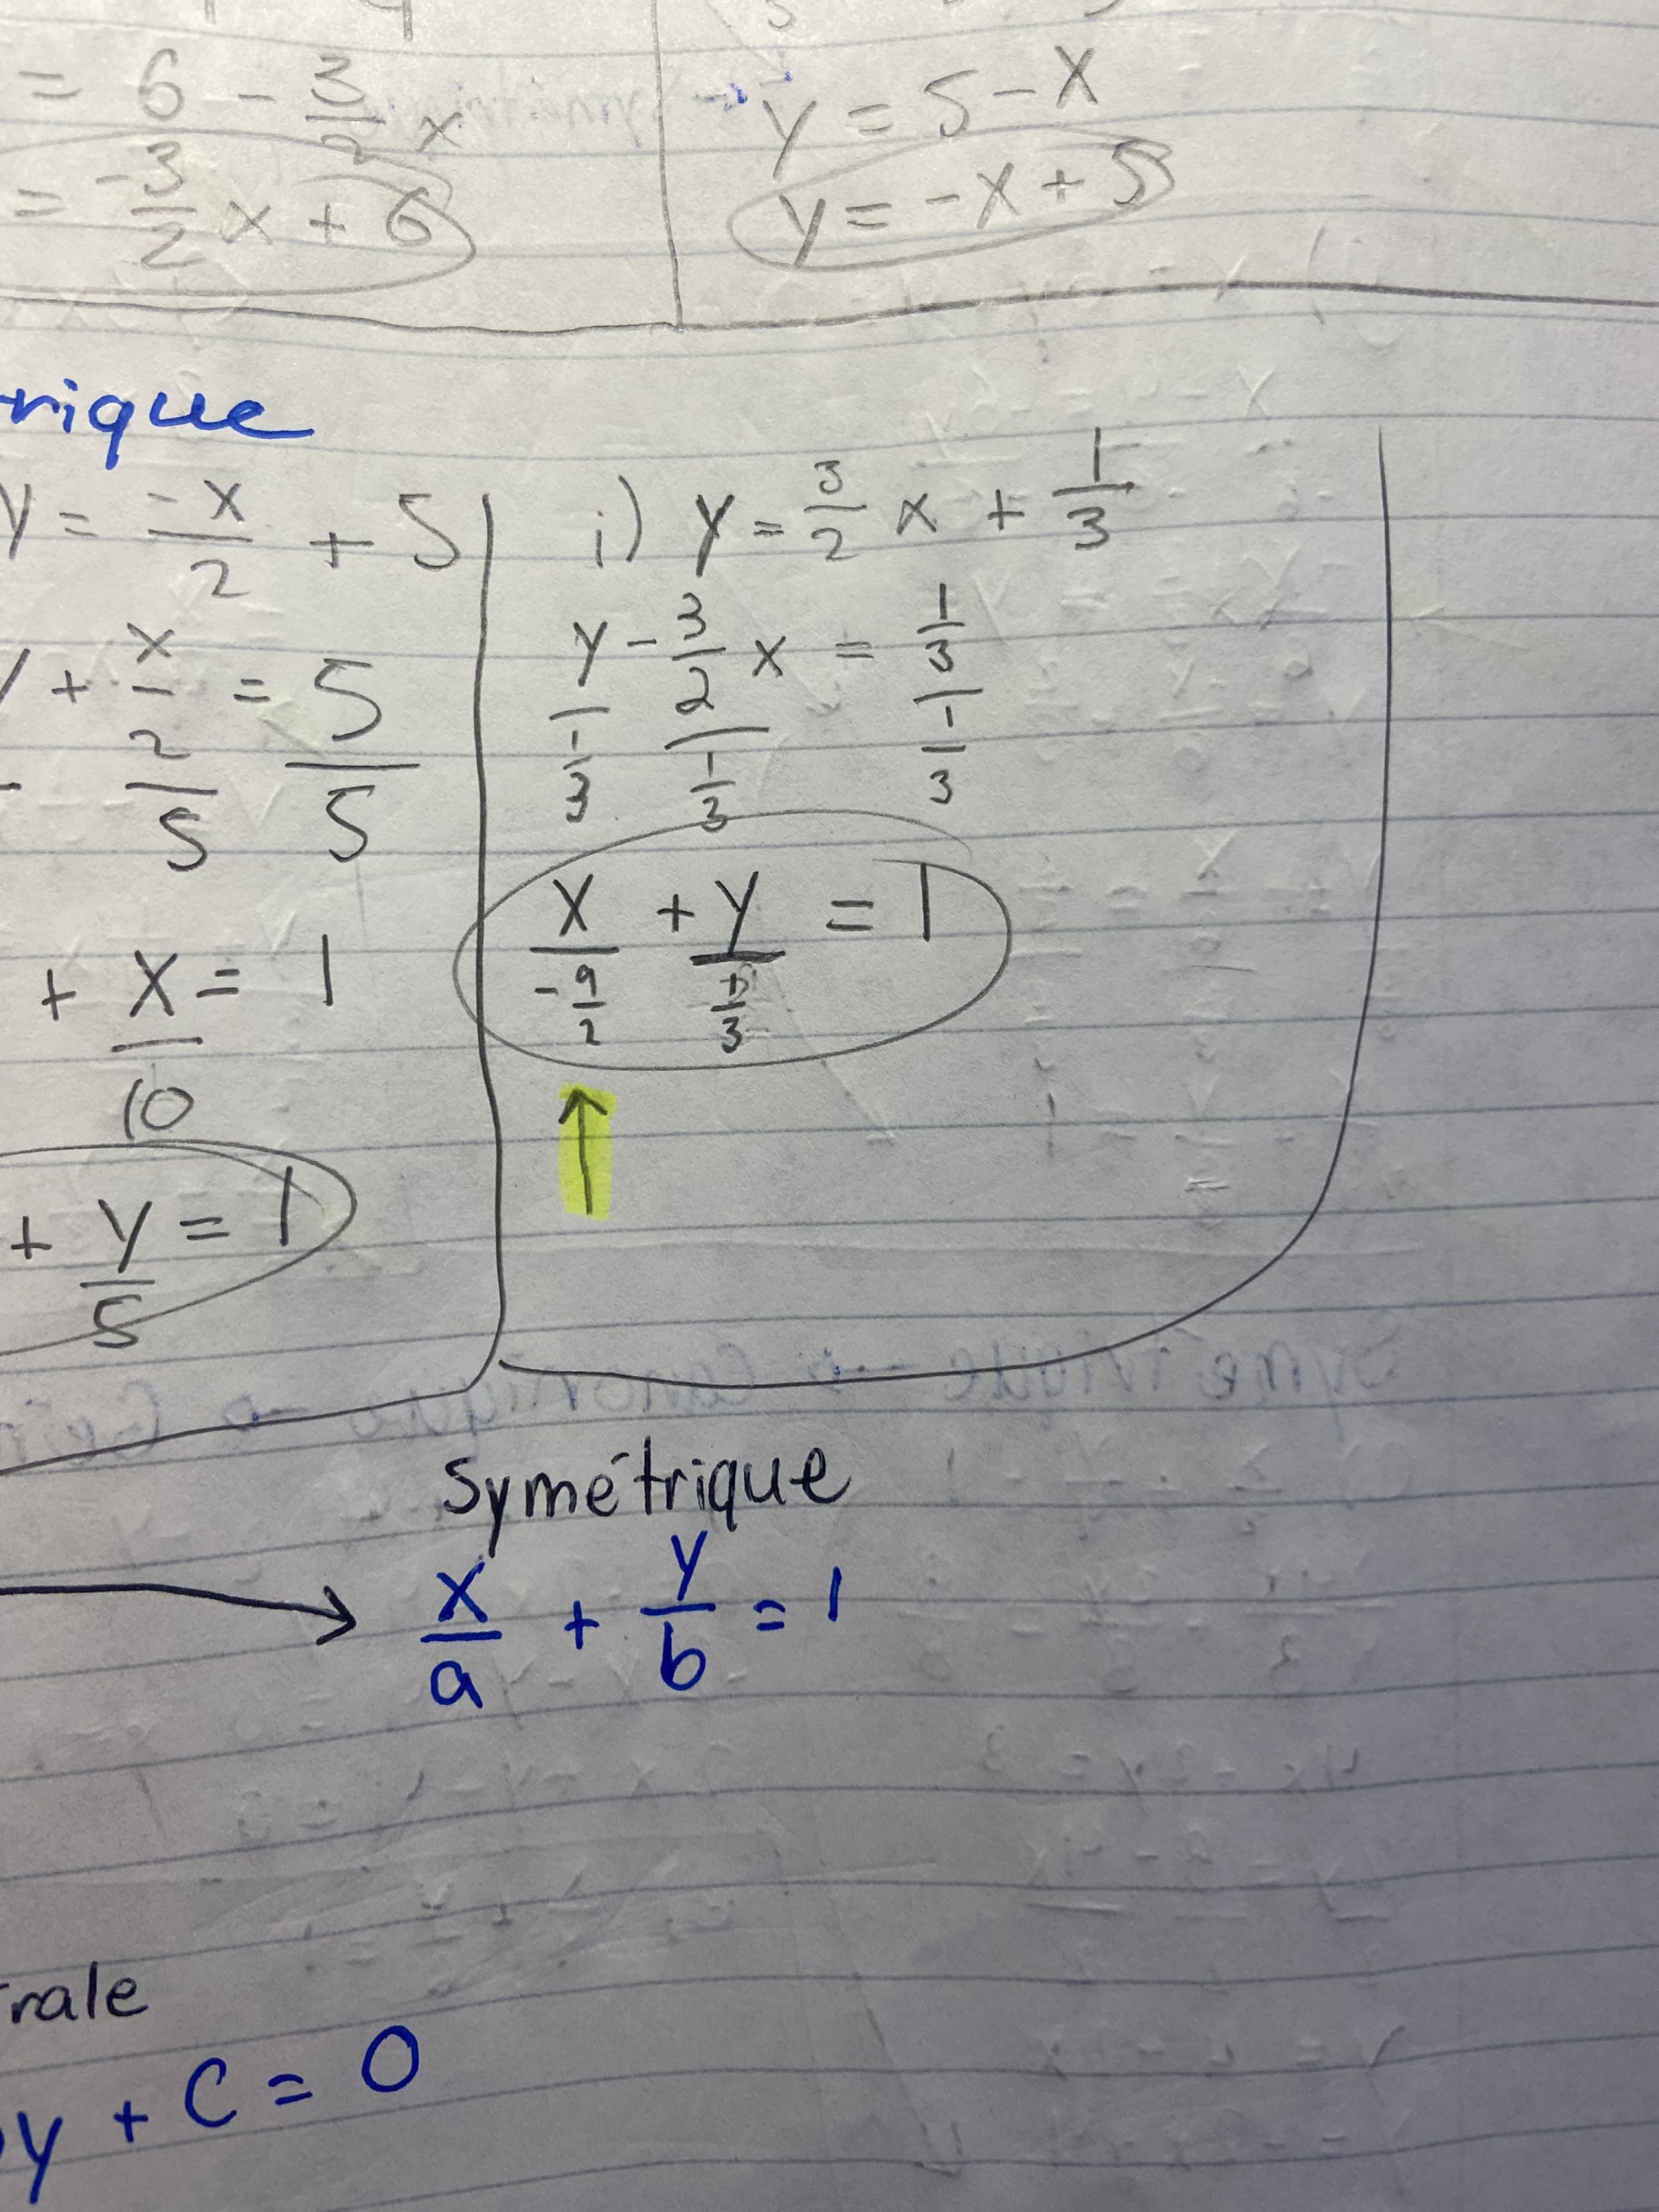 = 6 - 3/2 x
= -3/2 x + 6
y = 5 - x
y = -x + 5
rique
y = -x/2 + 5
y + x/2 = 5
5 5
+ x/10 = 1
+ y/5 = 1
i) y = 3/2 x + 1/3
y - 3/2 x = 1/3
1/3 1/3 1/3
x/(-9/2) + y/(1/3) = 1
↑
Symétrique
→ x/a + y/b = 1
rale
y + C = 0